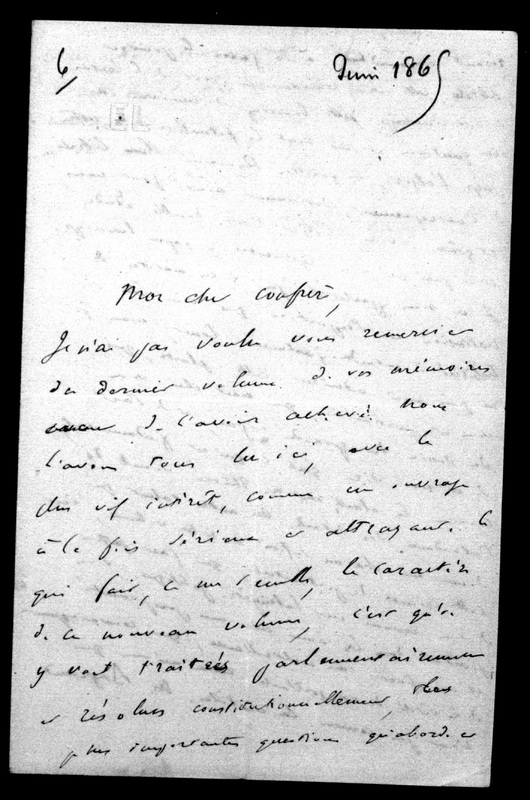 6
Juin 1865
Mon cher confrère,
Je n'ai pas voulu vous remercier
du dernier volume de vos mémoires
avant de l'avoir achevé. Nous
l'avons tous lu ici, avec le
plus vif intérêt, comme un ouvrage
à la fois sérieux et attrayant. Ce
qui fait, ce me semble, le caractère
de ce nouveau volume, c'est qu'on
y voit traitées parlementairement
et résolues constitutionnellement, les
plus importantes questions qu'aborde